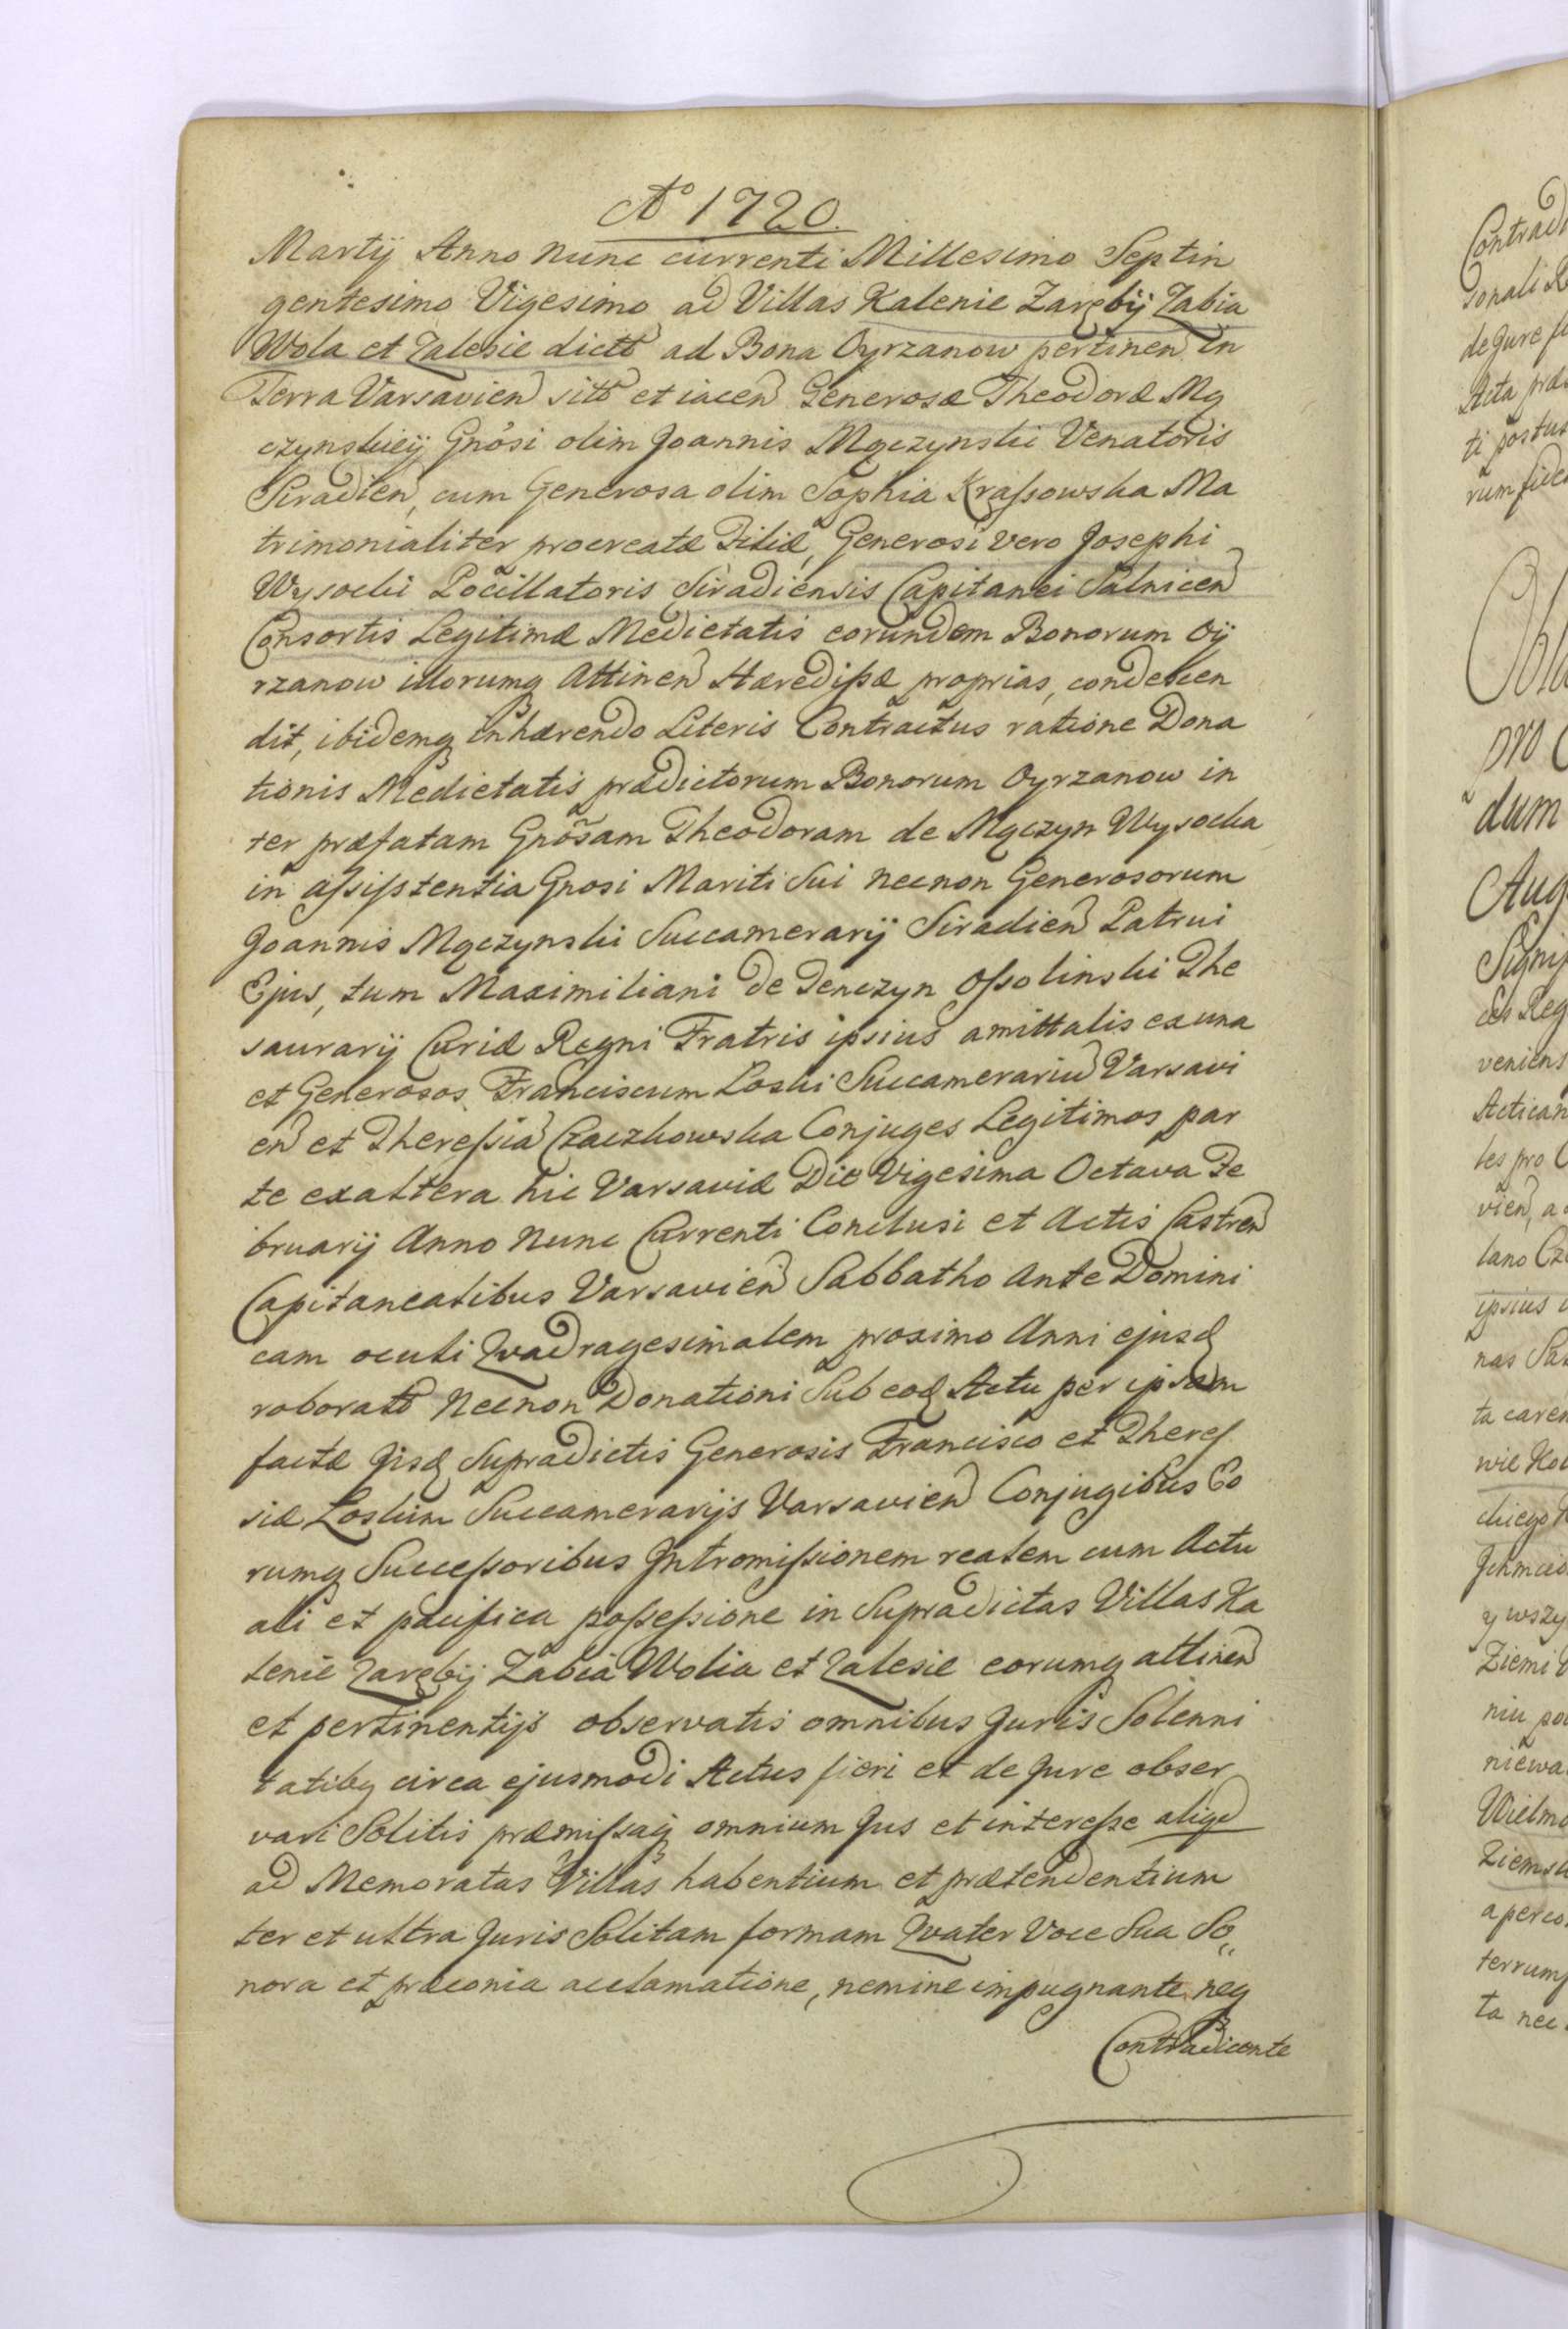 Aº 1720.
Martij Anno nunc currenti Millesimo Septin
gentesimo Vigesimo ad Villas Kalenie Zarębij Zabia
Wola et Zalesie dictt ad Bona Oyrzanow pertinen in
Terra Varsavien sitt et iacen Generosæ Theodoræ Mą
czynskiey Gnosi olim Joannis Mączynski Venatoris
Siradien, cum Generosa olim Sophia Kraſsowska Ma
trimonialiter procreatæ Filiæ, Generosi vero Josephi
Wysocki Pocillatoris Siradiensis Capitanei Salnicen
Consortis Legitimæ Medietatis eorundem Bonorum Oÿ
rzanow illorumq Attinen Hæredißæ proprias, condescen
dit, ibidemq inhærendo Literis Contractus ratione Dona
tionis Medietatis prædictorum Bonorum Oyrzanow in
ter præfatam Gnosam Theodoram de Mączyn Wysocka
in aſsiſstentia Gnosi Mariti Sui necnon Generosorum
Joannis Mączynski Succamerarij Siradien Patrui
Ejus, tum Maximiliani de Tenczyn Oſsolinski The
saurarij Curiæ Regni Fratris ipsius amittalis ex una
et Generosos Franciscum Loski Succamerariu Varsavi
en et Thereſsia Czaczkowska Conjuges Legitimos par
te ex altera hic Varsaviæ Die Vigesima Octava Fe
bruarij Anno nunc Currenti Conclusi et Actis Castren
Capitanealibus Varsavien Sabbatho Ante Domini
cam oculi Quadragesimalem proximo Anni ejusd
roboratt Necnon Donationi Sub eod Actu per ipsam
factæ Jisd Supradictis Generosis Francisco et Thereſ
siæ Loskim Succamerarijs Varsavien Conjugibus Eo
rumq Succeſsoribus Intromiſsionem realem cum Actu
ali et pacifica poſseſsione in Supradictas Villas Ka
lenie Zarębij Zabia Wolia et Zalesie eorumq attinen
et pertinentijs observatis omnibus Juris Solenni
tatibq circa ejusmodi Actus fieri et de Jure obser
vari Solitis præmiſsaq omnium Jus et intereſse aliqd
ad Memoratas Villas habentium et prætendentium
ter et ultra Juris Solitam formam Quater Voce Sua So„
nora et præconia acclamatione, nemine impugnante neq
Contradicente